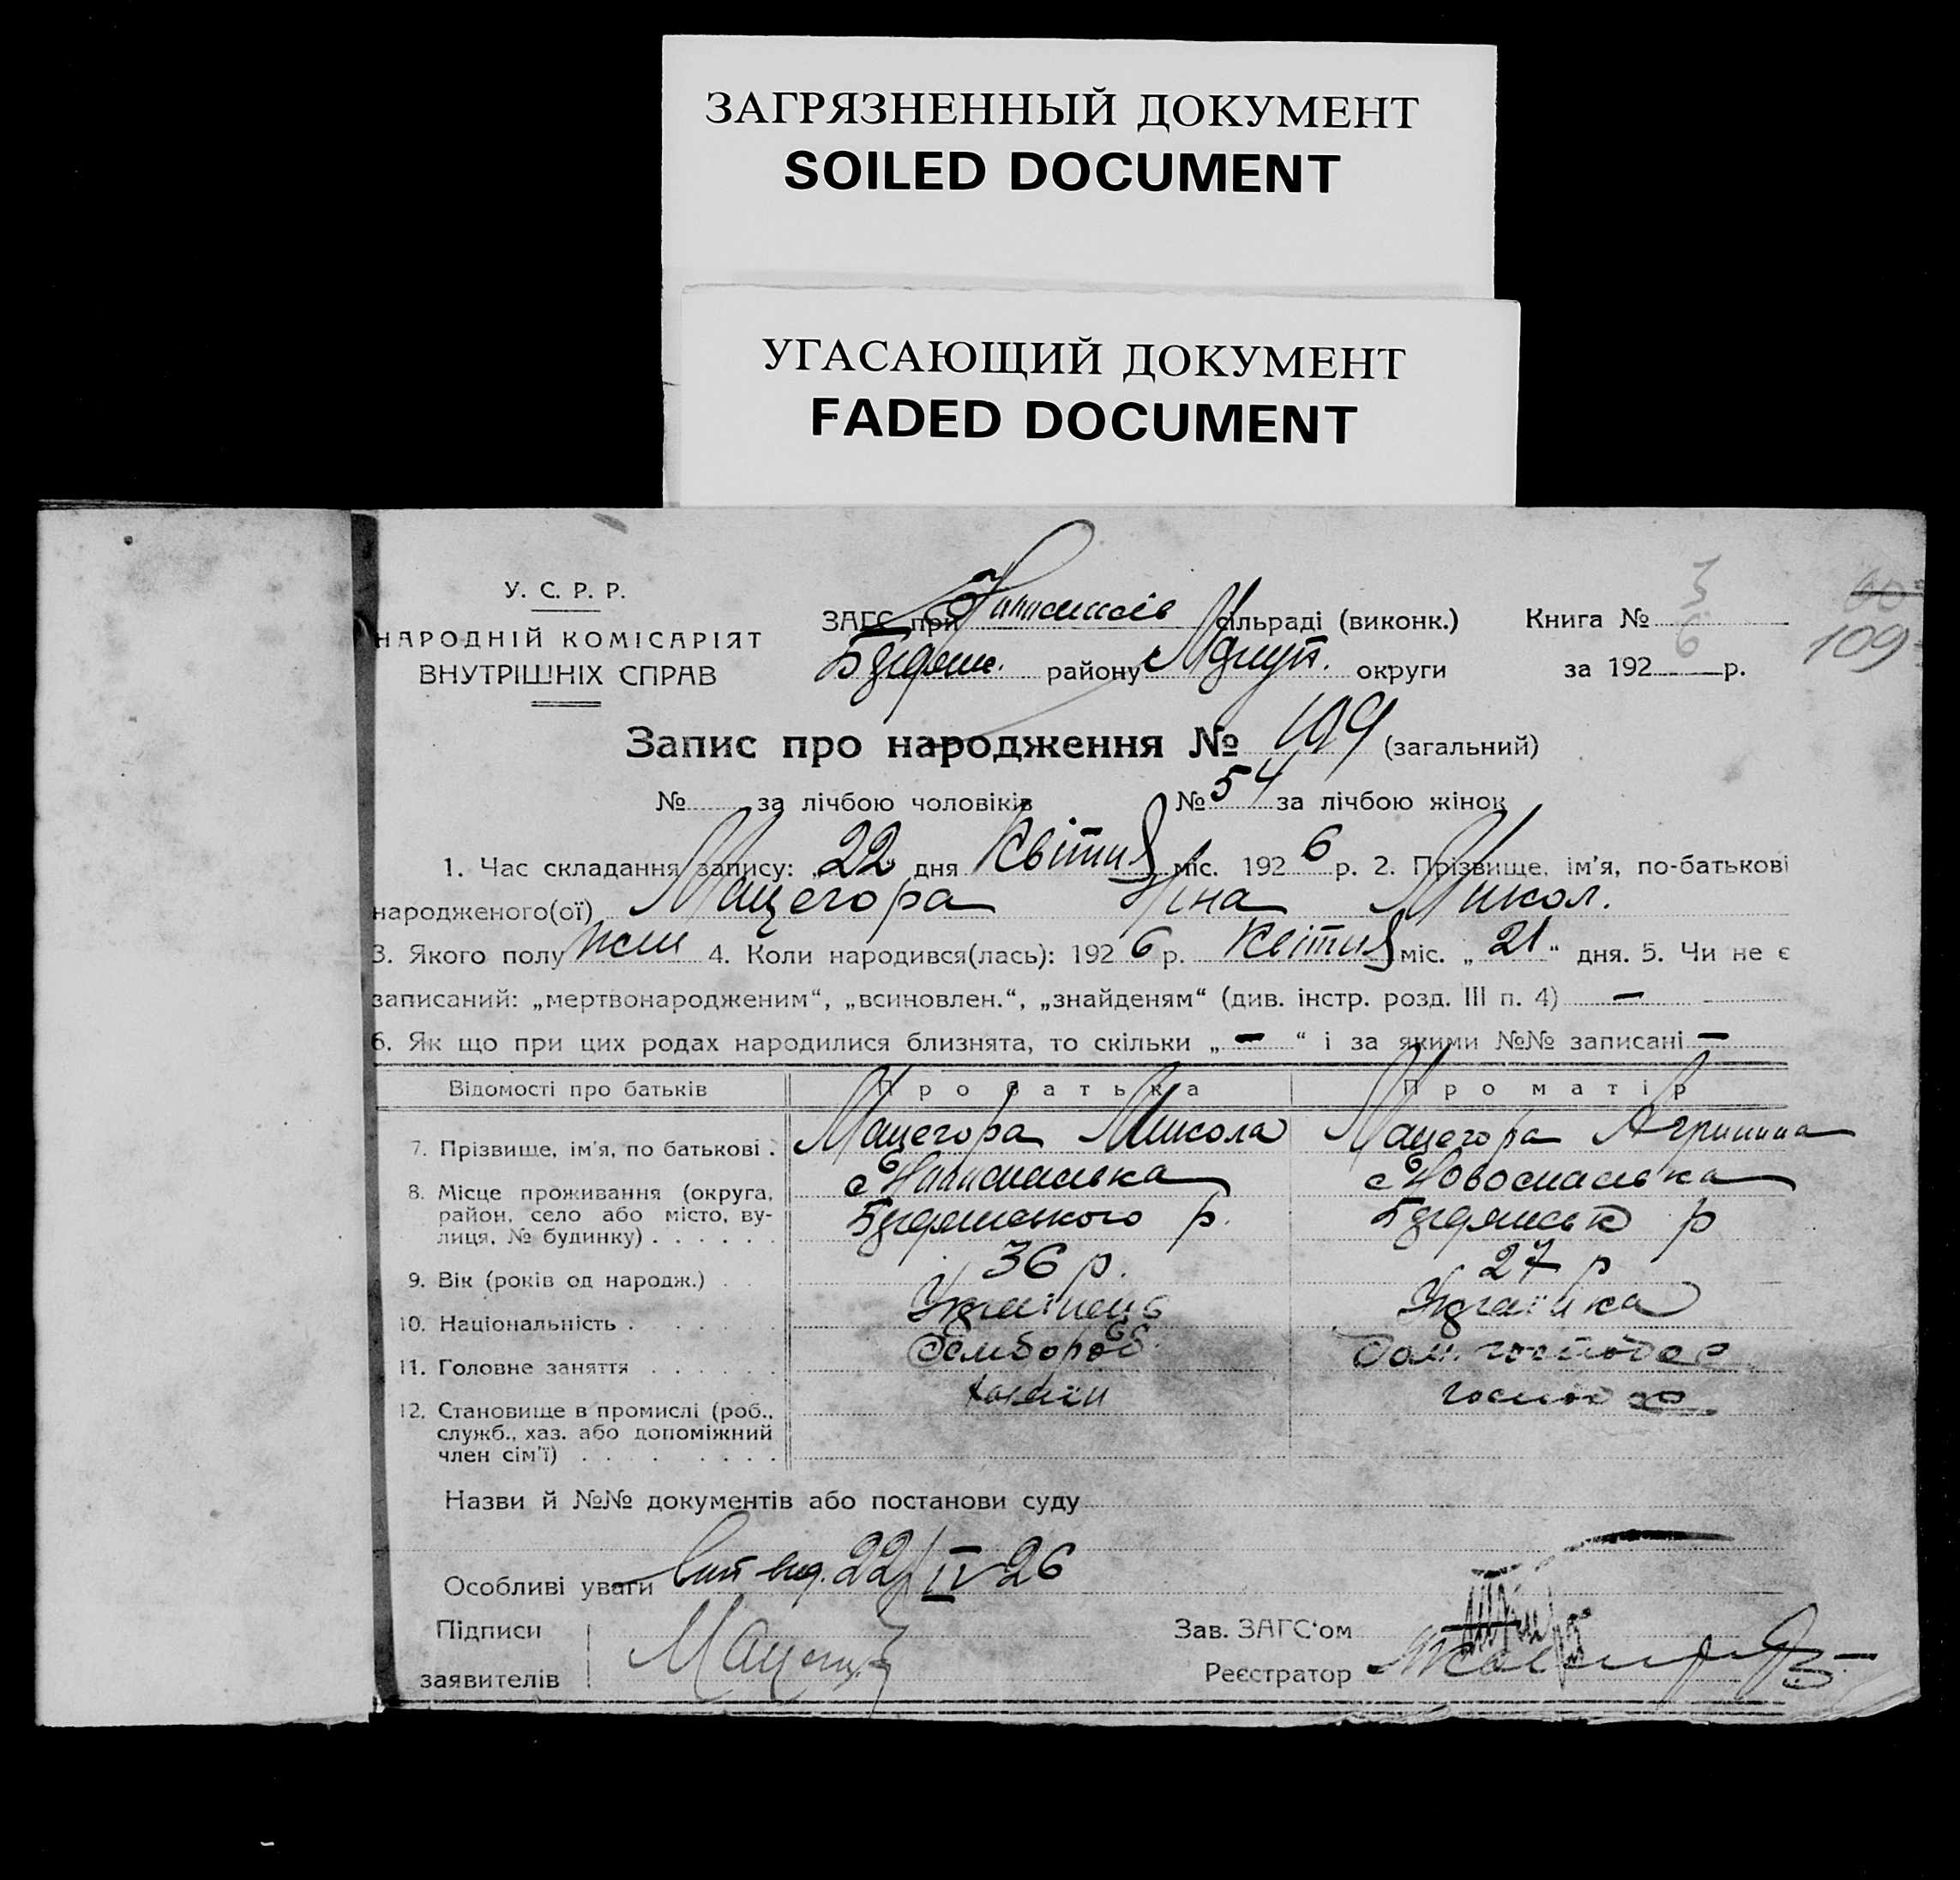 ЗАГРЯЗНЕННЫЙ ДОКУМЕНТ
SOILED DOCUMENT
УГАСАЮЩИЙ ДОКУМЕНТ
FADED DOCUMENT
У. С. Р. Р.
НАРОДНІЙ КОМІСАРІЯТ
ВНУТРІШНІХ СПРАВ
ЗАГС при сільраді (виконк.)
району округи
Книга № 3
за 1926 р.
109
Запис про народження № 109 (загальний)
№ за лічбою чоловіків № 54 за лічбою жінок
1. Час складання запису: „22" дня Квітня міс. 1926 р. 2. Прізвище, ім'я, по-батькові
народженого(ої) Мацегора Ніна Микол.
3. Якого полу жін 4. Коли народився(лась): 1926 р. Квітня міс. „21" дня. 5. Чи не є
записаний: „мертвонародженим", „всиновлен.", „знайденям" (див. інстр. розд. III п. 4) —
6. Як що при цих родах народилися близнята, то скільки „—" і за якими №№ записані —
Відомості про батьків Про батька Про матір
7. Прізвище, ім'я, по батькові . Мацегора Микола Мацегора Агрипина
8. Місце проживання (округа, район, село або місто, вулиця, № будинку) . . . . . .
с Новоспаська
р.
с Новоспаська
р
9. Вік (років од народж.) . . 36 р. 27 р
10. Національність . . . . . Українець Українка
11. Головне заняття . . . . . Хлібороб Дом. господар
12. Становище в промислі (роб., служб., хаз. або допоміжний член сім'ї) . . . . . . . .
хазяїн
Назви й №№ документів або постанови суду
Особливі уваги 22/IV 26
Підписи
заявителів
Зав. ЗАГС'ом
Реєстратор